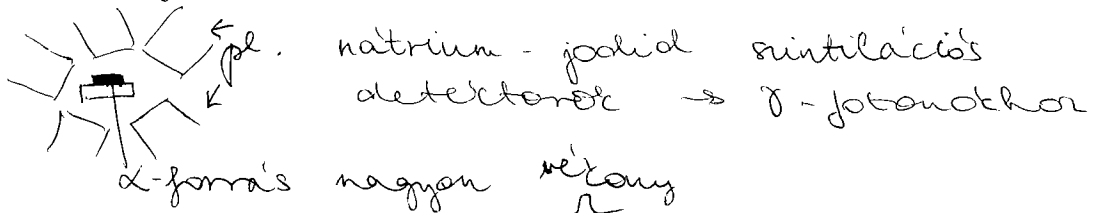 pl. nátrium-jodid szintilációs
detektorok → γ-fotonokhoz
α-forrás nagyon vékony